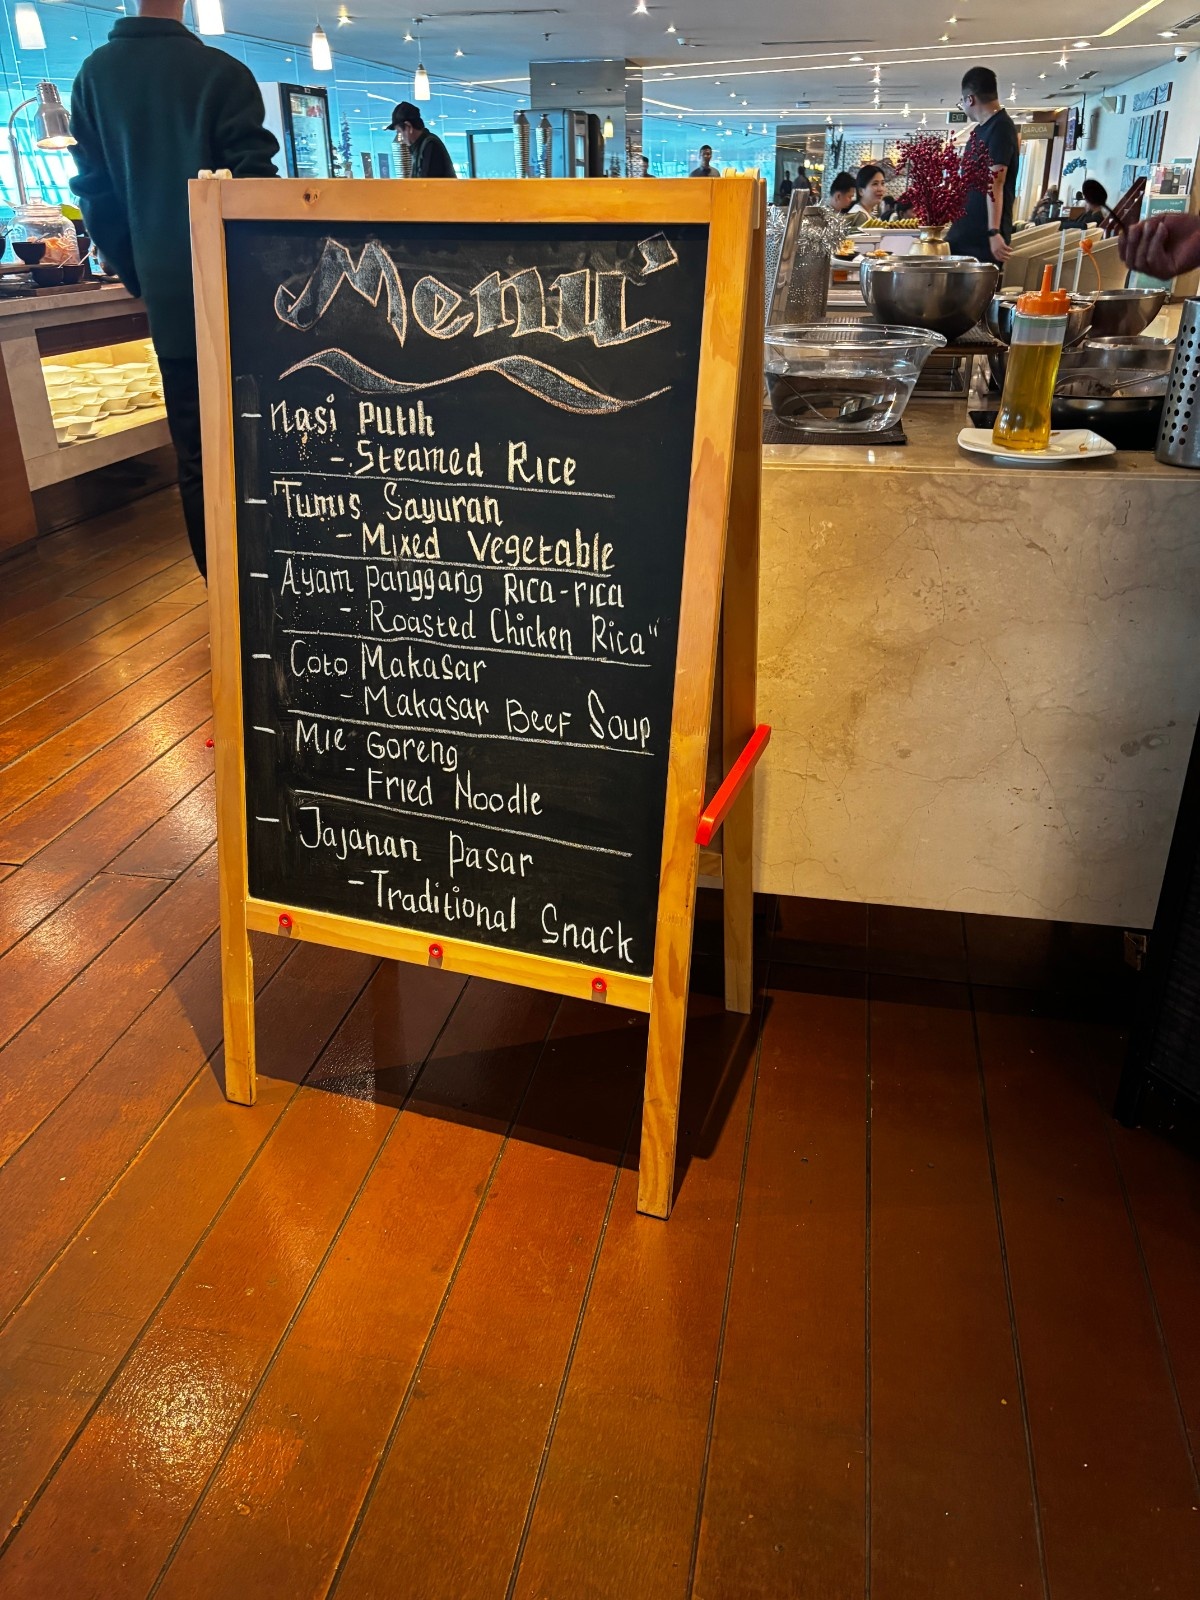 Menu'
- Nasi Putih
- Steamed Rice
- Tumis Sayuran
- Mixed Vegetable
- Ayam Panggang Rica-rica
- Roasted Chicken Rica"
- Coto Makasar
- Makasar Beef Soup
- Mie Goreng
- Fried Noodle
- Jajanan Pasar
- Traditional Snack
EXIT
GARUDA